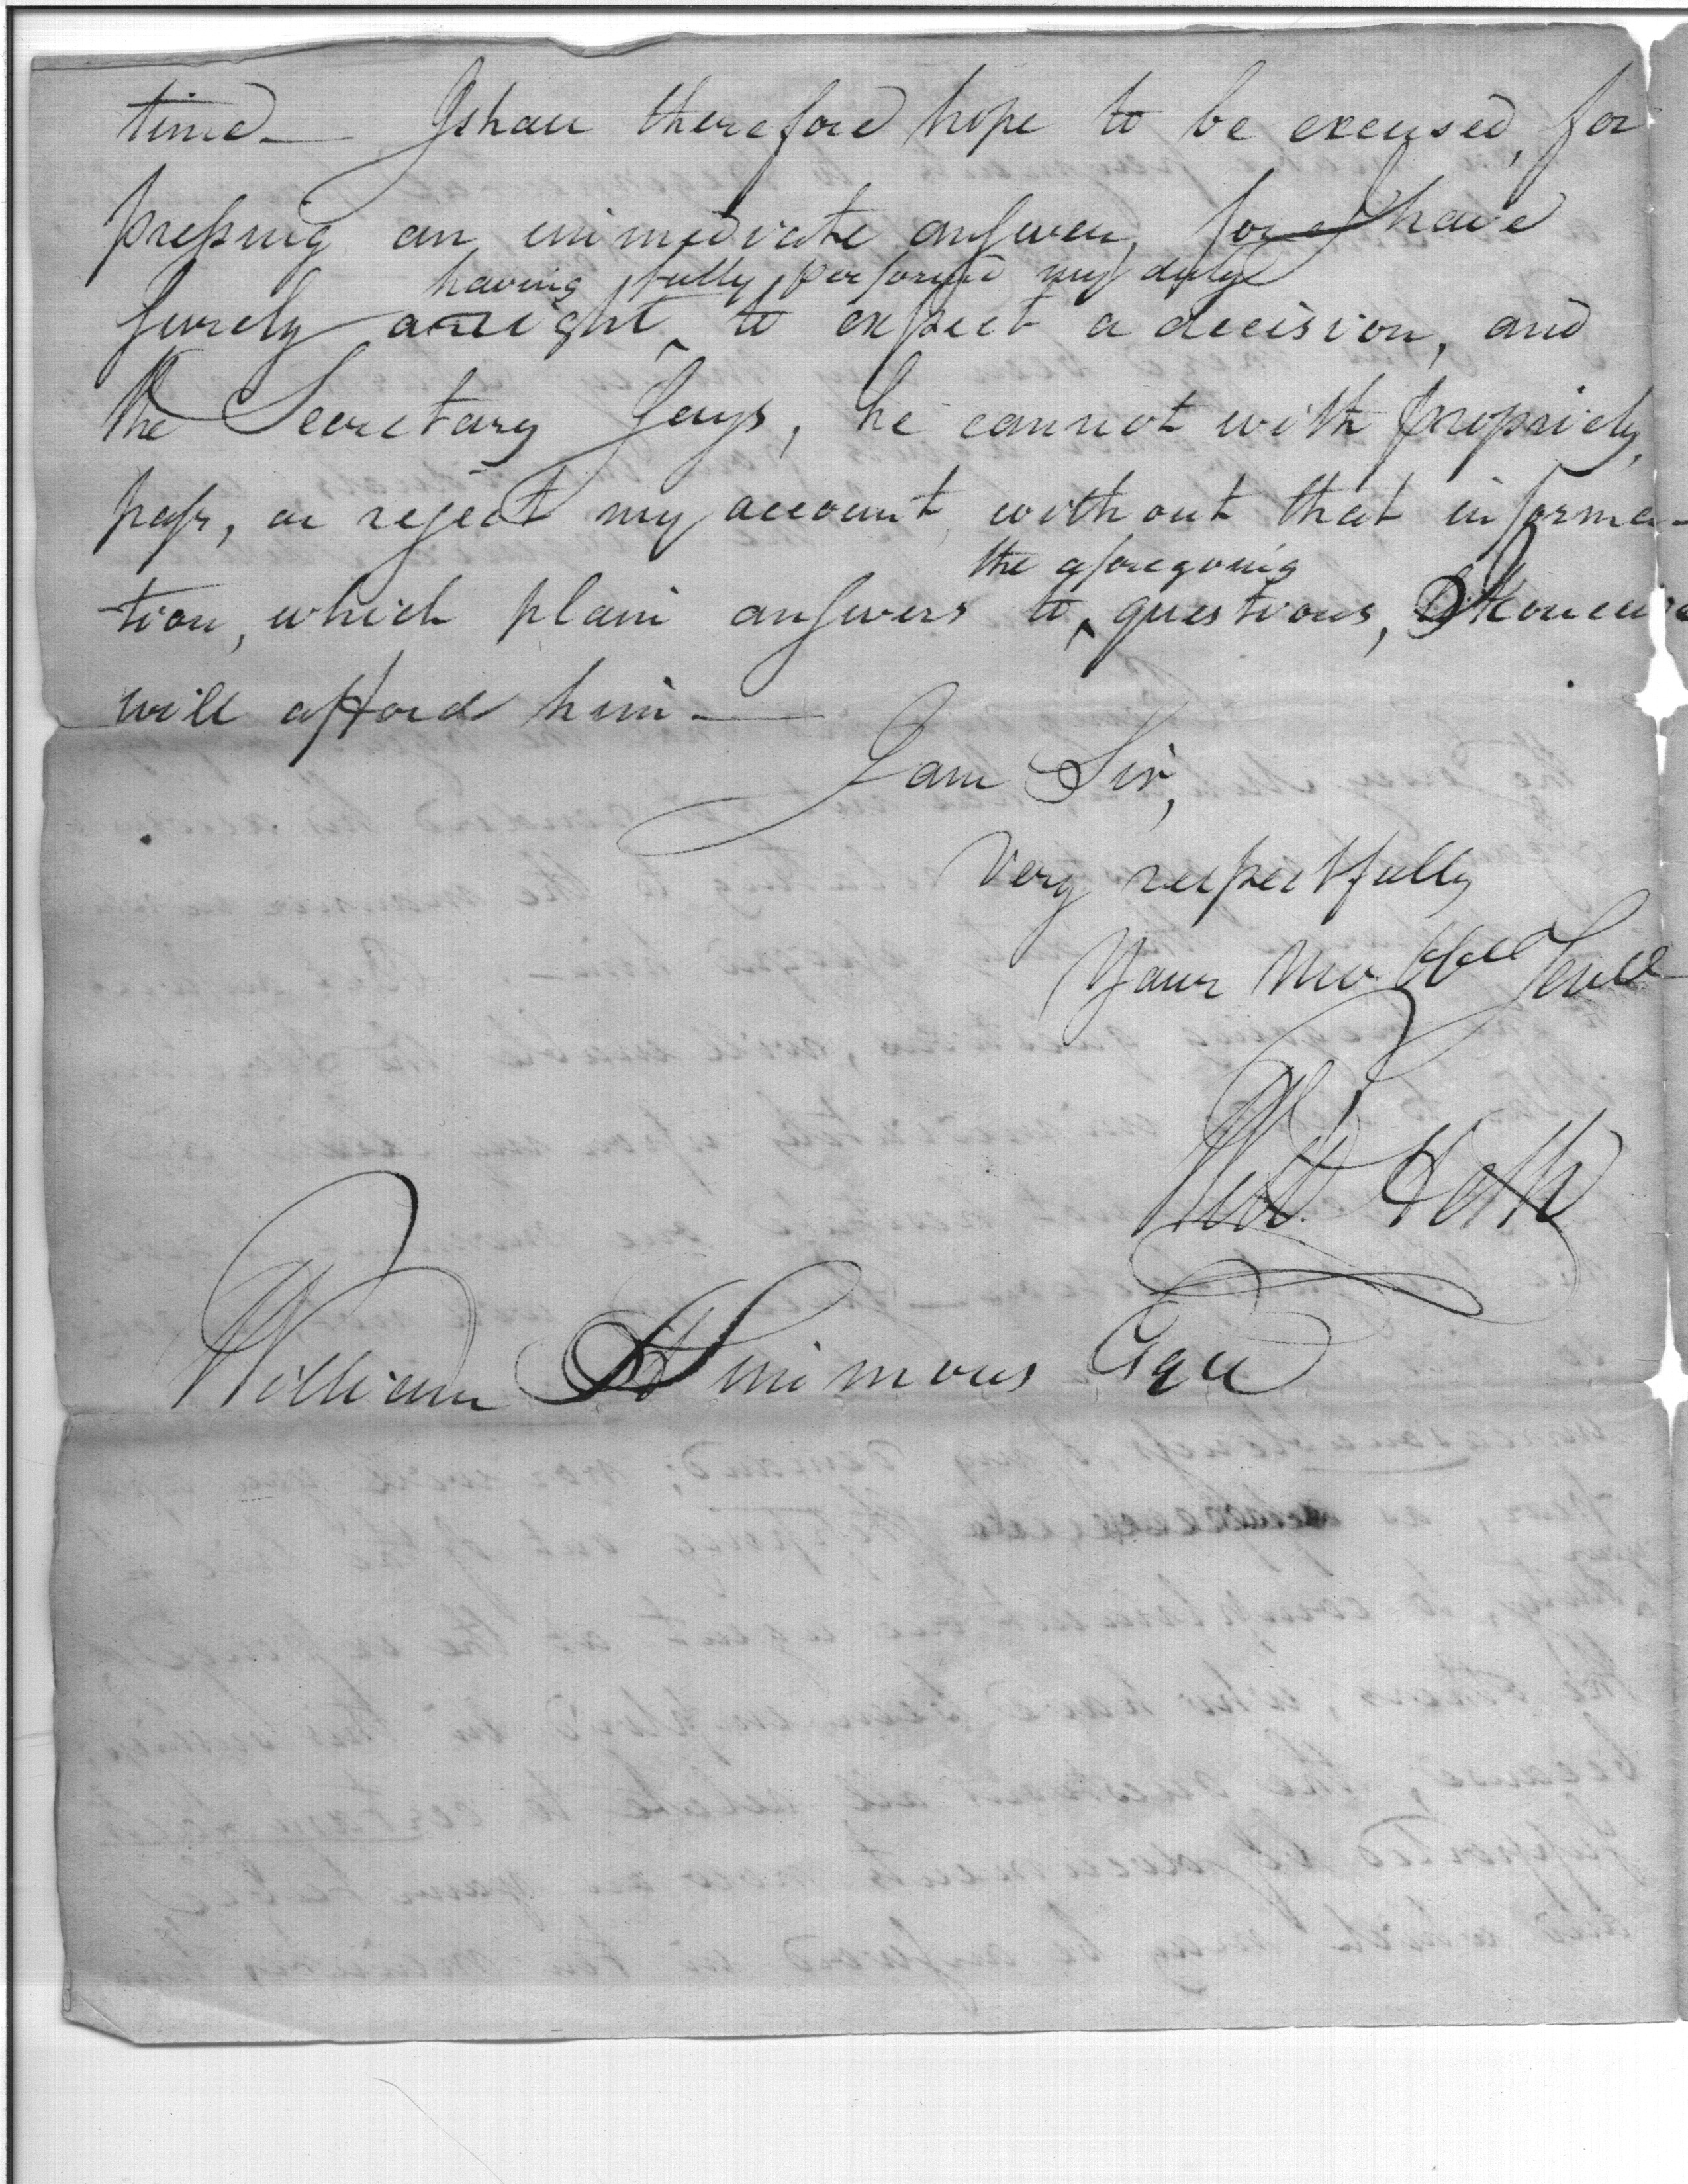 time— I shall therefore hope to be excused, for
pressing an immediate answer, for I have
having fully performd my duty
surely a right to expect a decision, and
the Secretary says, he cannot with propriety,
pass, or reject my account, without that informa-
the aforegoing
tion, which plain answers to questions,
will afford him—
I am Sir,
Very respectfully
Your Mo Ob Serv
William Simmons Esqr